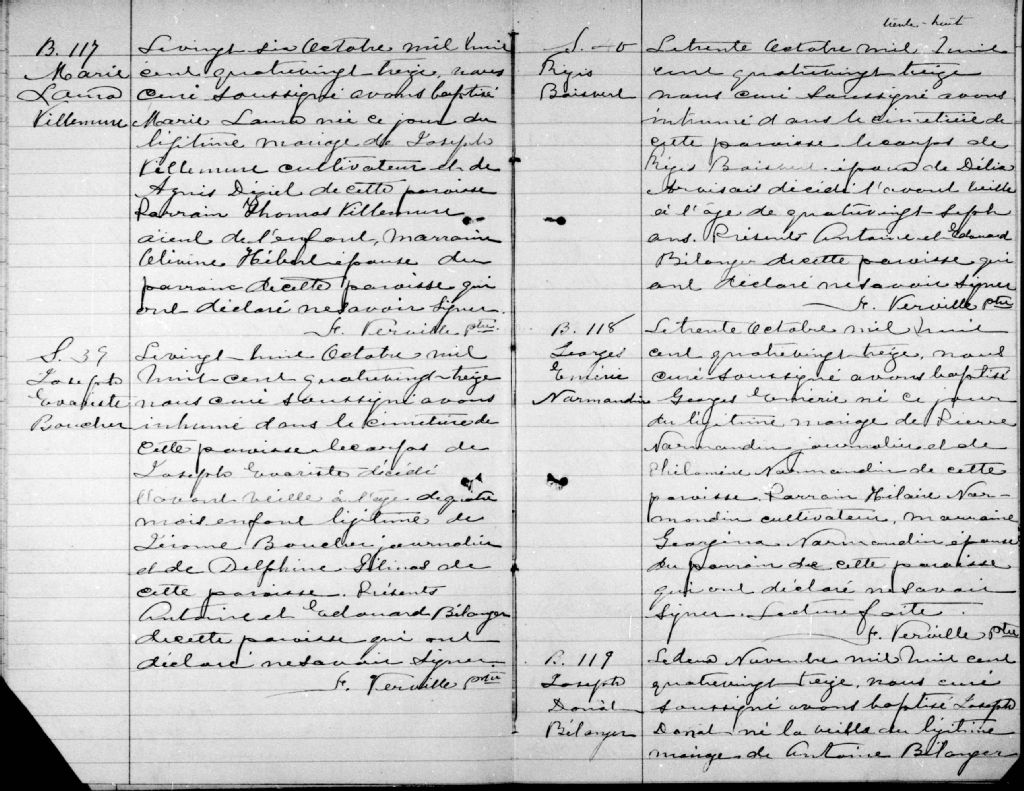 B. 117
Marie
Laura
Villemure
Le vingt six Octobre mil huit
cent quatrevingt treize, nous
curé soussigné avons baptisé
Marie Laura née ce jour du
légitime mariage de Joseph
Villemure cultivateur et de
Agnis Déziel de cette paroisse
Parrain Thomas Villemure
aieul de l'enfant, marraine
Olivine Hébert épouse du
parrain de cette paroisse qui
ont déclaré ne savoir signer.
F. Verville ptre
S. 39
Joseph
Evariste
Boucher
Le vingt-huit Octobre mil
huit-cent quatrevingt-treize
nous curé soussigné avons
inhumé dans le cimetière de
cette paroisse le corps de
Joseph Evariste décédé
l'avant-veille à l'age de quatre
mois enfant légitime de
Jérome Boucher journalier
et de Delphine Gélinas de
cette paroisse. Présents
Antoine et Edouard Bélanger
de cette paroisse qui ont
déclaré ne savoir signer
F. Verville ptre
trente-huit
S. 40
Régis
Boisvert
Le trente Octobre mil huit
cent quatrevingt treize
nous curé soussigné avons
inhumé dans le cimetière de
cette paroisse le corps de
Régis Boisvert époux de Délia
décédé l'avant veille
à l'âge de quatrevingt sept
ans. Présents Antoine et Edouard
Bélanger de cette paroisse qui
ont déclaré ne savoir signer
F. Verville ptre
B. 118
Georges
Emérie
Normandin
Le trente Octobre mil huit
cent quatrevingt-treize, nous
curé soussigné avons baptisé
Georges Emerie né ce jour
du légitime mariage de Pierre
Normandin journalier et de
Philomine Normandin de cette
paroisse. Parrain Hilaire Nor-
mandin cultivateur, marraine
Georgina Normandin épouse
du parrain de cette paroisse
qui ont déclaré ne savoir
signer. Lecture faite.
F. Verville ptre
B. 119
Joseph
Donat
Bélanger
Le deux Novembre mil huit cent
quatrevingt treize, nous curé
soussigné avons baptisé Joseph
Donat né la veille du légitime
mariage de Antoine Bélanger